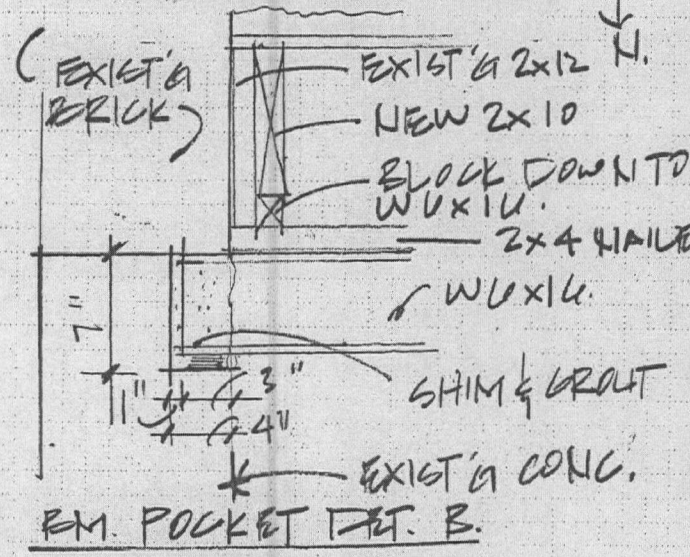 N.
EXIST'G
BRICK
EXIST'G 2x12
NEW 2x10
BLOCK DOWN TO
W6x16.
2x4 NAILE
W6x16.
7"
1"
3"
4"
SHIM & GROUT
EXIST'G CONC.
BM. POCKET DET. B.